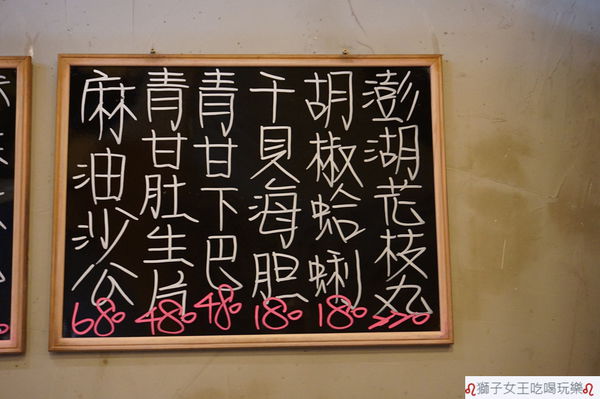 澎湖花枝丸 220
胡椒蛤蜊 180
干貝海胆 180
青甘下巴 480
青甘肚生片 480
麻油沙公 680
獅子女王吃喝玩樂